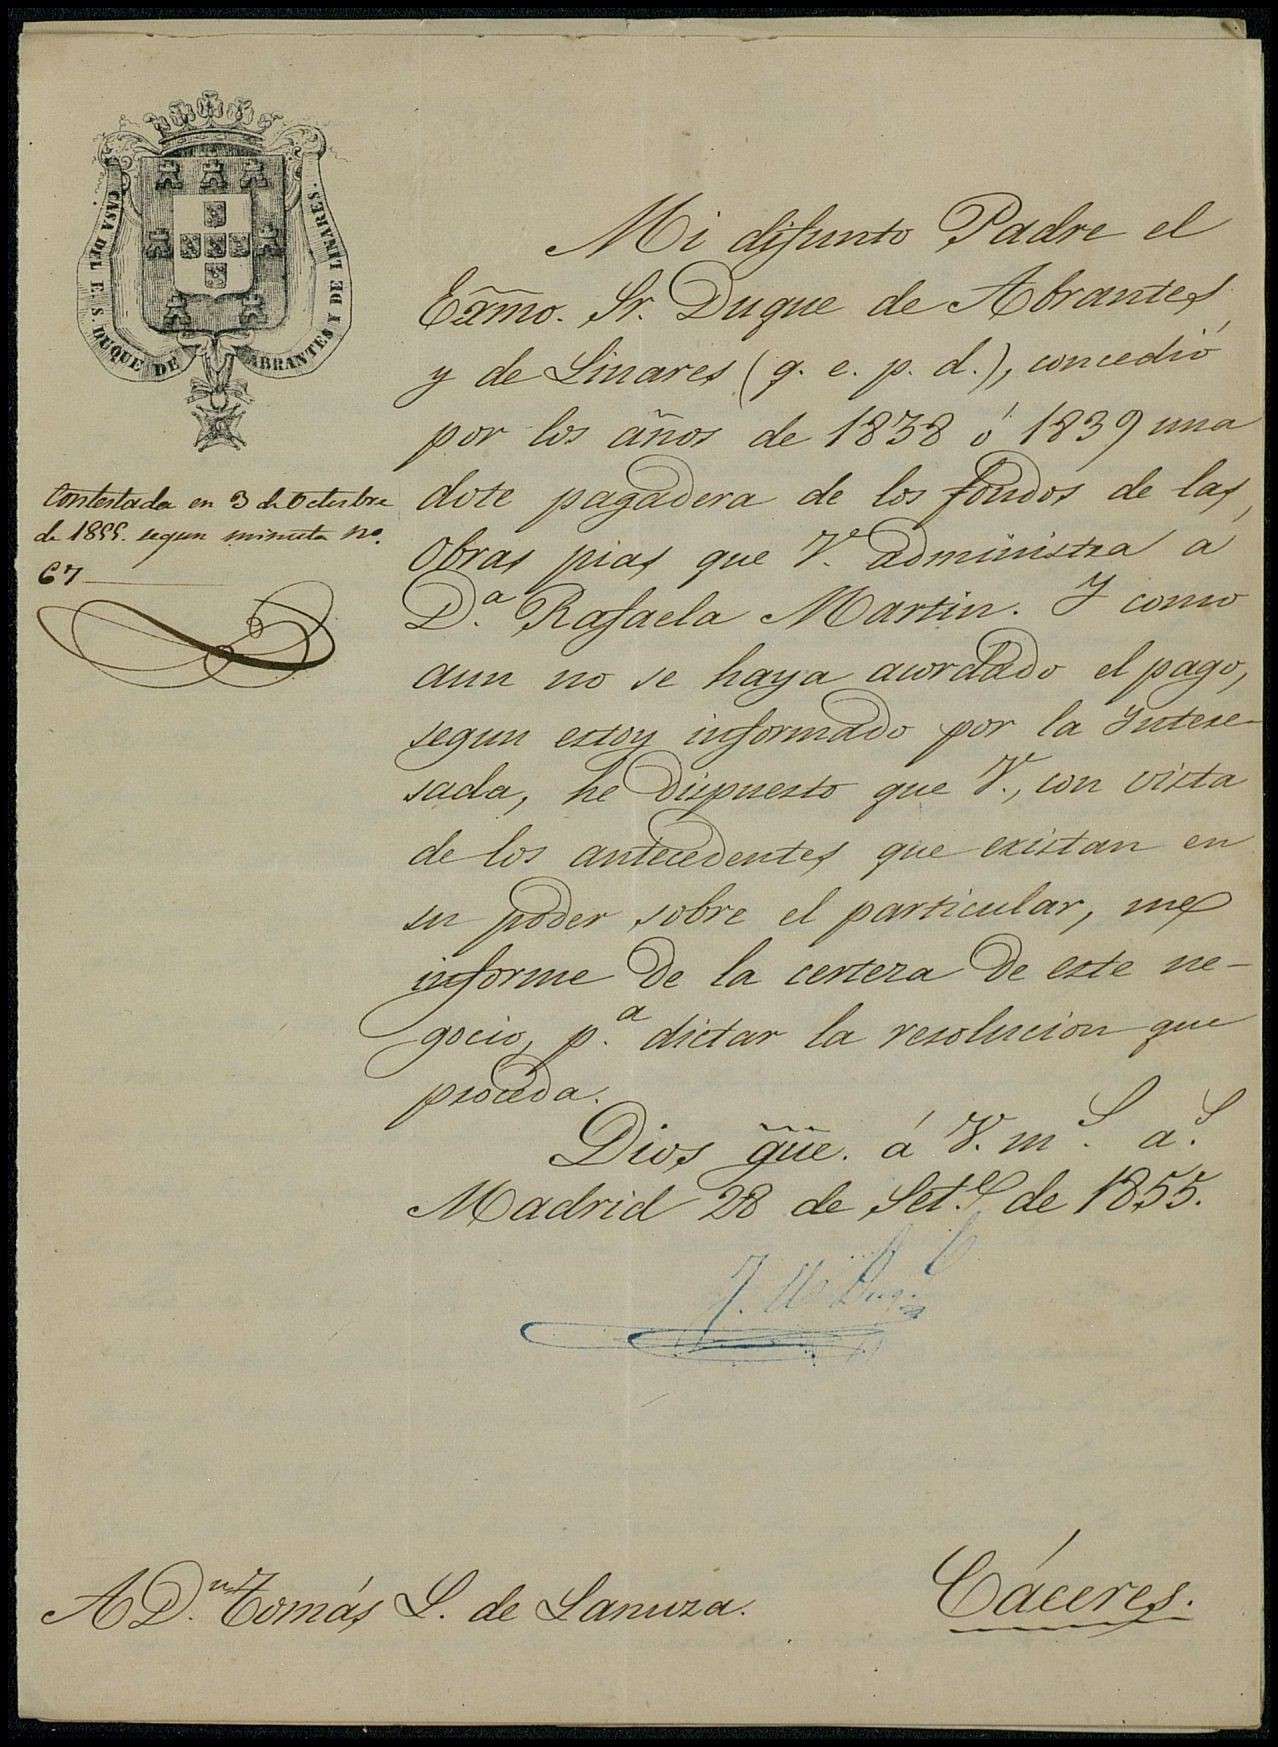 CASA DEL E. S. DUQUE DE ABRANTES Y DE LINARES.
Contestada en 3 de Octubre
de 1855. segun minuta no.
67
Mi difunto Padre el
Exm̃o. Sr. Duque de Abrantes
y de Linares (q. e. p. d.), concedió
por los años de 1838 ó 1839 una
dote pagadera de los fondos de las
Obras pias que V. administra á
D.ª Rafaela Martin. Y como
aun no se haya acordado el pago,
segun estoy informado por la Intere-
sada, he dispuesto que V., con vista
de los antecedentes que existan en
su poder sobre el particular, me
informe de la certeza de este ne-
gocio, p.ª dictar la resolucion que
proceda.
Dios gũe. á V. m.s a.s
Madrid 28 de Set.e de 1855.
A D.n Tomás S. de Lanuza.
Cáceres.